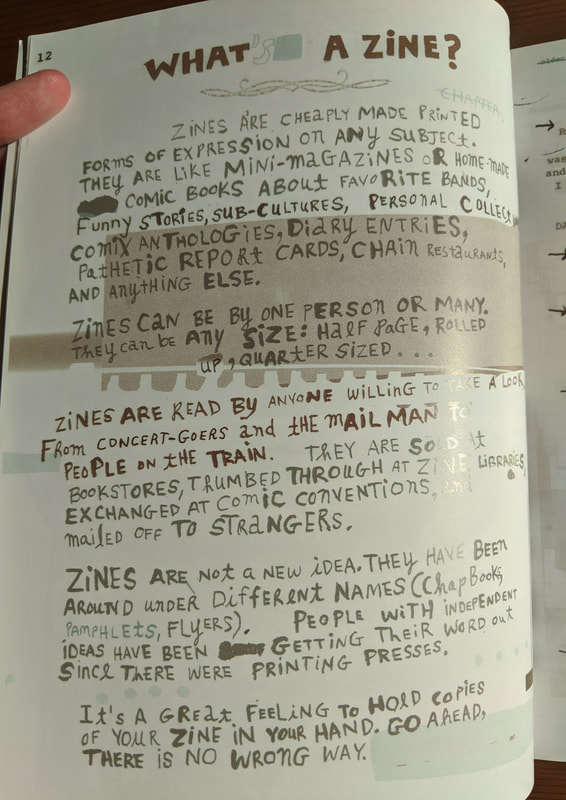 12
WHAT'S A ZINE?
CHAPTER
ZINES ARE CHEAPLY MADE PRINTED
FORMS OF EXPRESSION ON ANY SUBJECT.
THEY ARE LIKE MINI-MAGAZINES OR HOME-MADE
COMIC BOOKS ABOUT FAVORITE BANDS,
FUNNY STORIES, SUB-CULTURES, PERSONAL
COMIX ANTHOLOGIES, DIARY ENTRIES,
PATHETIC REPORT CARDS, CHAIN RESTAURANTS,
AND ANYTHING ELSE.
ZINES CAN BE BY ONE PERSON OR MANY.
THEY CAN BE ANY SIZE: HALF PAGE, ROLLED
UP, QUARTER SIZED...
ZINES ARE READ BY ANYONE WILLING TO TAKE A LOOK
FROM CONCERT-GOERS and the MAIL MAN TO
PEOPLE ON the TRAIN. THEY ARE SOLD At
BOOKSTORES, THUMBED THROUGH AT ZINE LIBRARIES,
EXCHANGED AT COMIC CONVENTIONS, and
mailed OFF TO STRANGERS.
ZINES ARE NOT A NEW IDEA. THEY HAVE BEEN
AROUND UNDER Different NAMES (Chap Books,
PAMPHLETS, FLYERS). PEOPLE WITH INDEPENDENT
IDEAS HAVE BEEN GETTING THEIR WORD OUT
SINCE THERE WERE PRINTING PRESSES.
It's A GREAT FEELING TO HOLD COPIES
OF YOUR ZINE IN YOUR HAND. GO AHEAD,
THERE IS NO WRONG WAY.
was
and
I